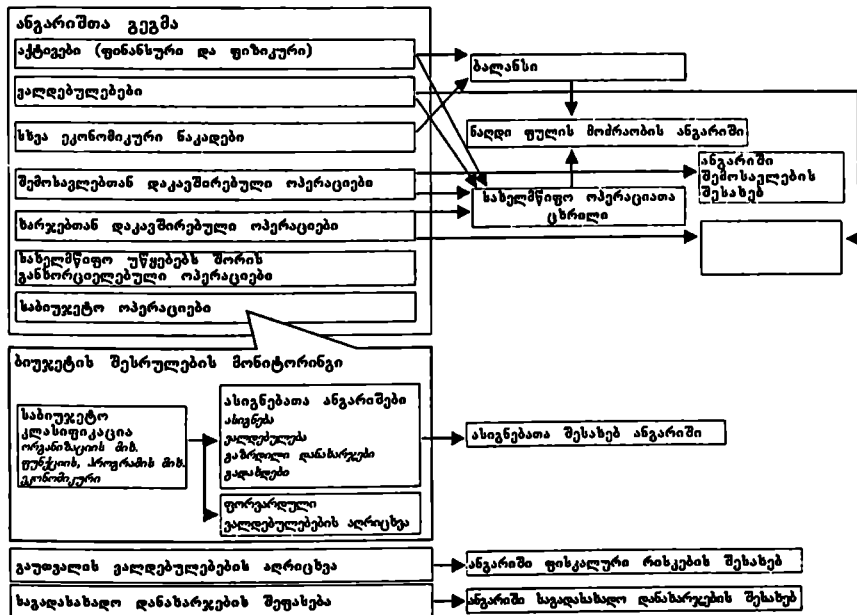 ანგარიშთა გეგმა
აქტივები (ფინანსური და ფიზიკური)
ვალდებულებები
სხვა ეკონომიკური ნაკადები
შემოსავლებთან დაკავშირებული ოპერაციები
ხარჯებთან დაკავშირებული ოპერაციები
სახელმწიფო უწყებებს შორის
განხორციელებული ოპერაციები
საბიუჯეტო ოპერაციები
ბალანსი
ნაღდი ფულის მოძრაობის ანგარიში
ანგარიში
შემოსავლების
შესახებ
სახელმწიფო ოპერაციათა
ცხრილი
ბიუჯეტის შესრულების მონიტორინგი
საბიუჯეტო
კლასიფიკაცია
ორგანიზაციის მიხ.
ფუნქციის, პროგრამის მიხ.
ეკონომიკური
ასიგნებათა ანგარიშები
ასიგნება
ვალდებულება
გაზრდილი დანახარჯები
გადახდები
ფორვარდული
ვალდებულებების აღრიცხვა
ასიგნებათა შესახებ ანგარიში
გაუთვალის ვალდებულებების აღრიცხვა
ანგარიში ფისკალური რისკების შესახებ
საგადასახადო დანახარჯების შეფასება
ანგარიში საგადასახადო დანახარჯების შესახებ